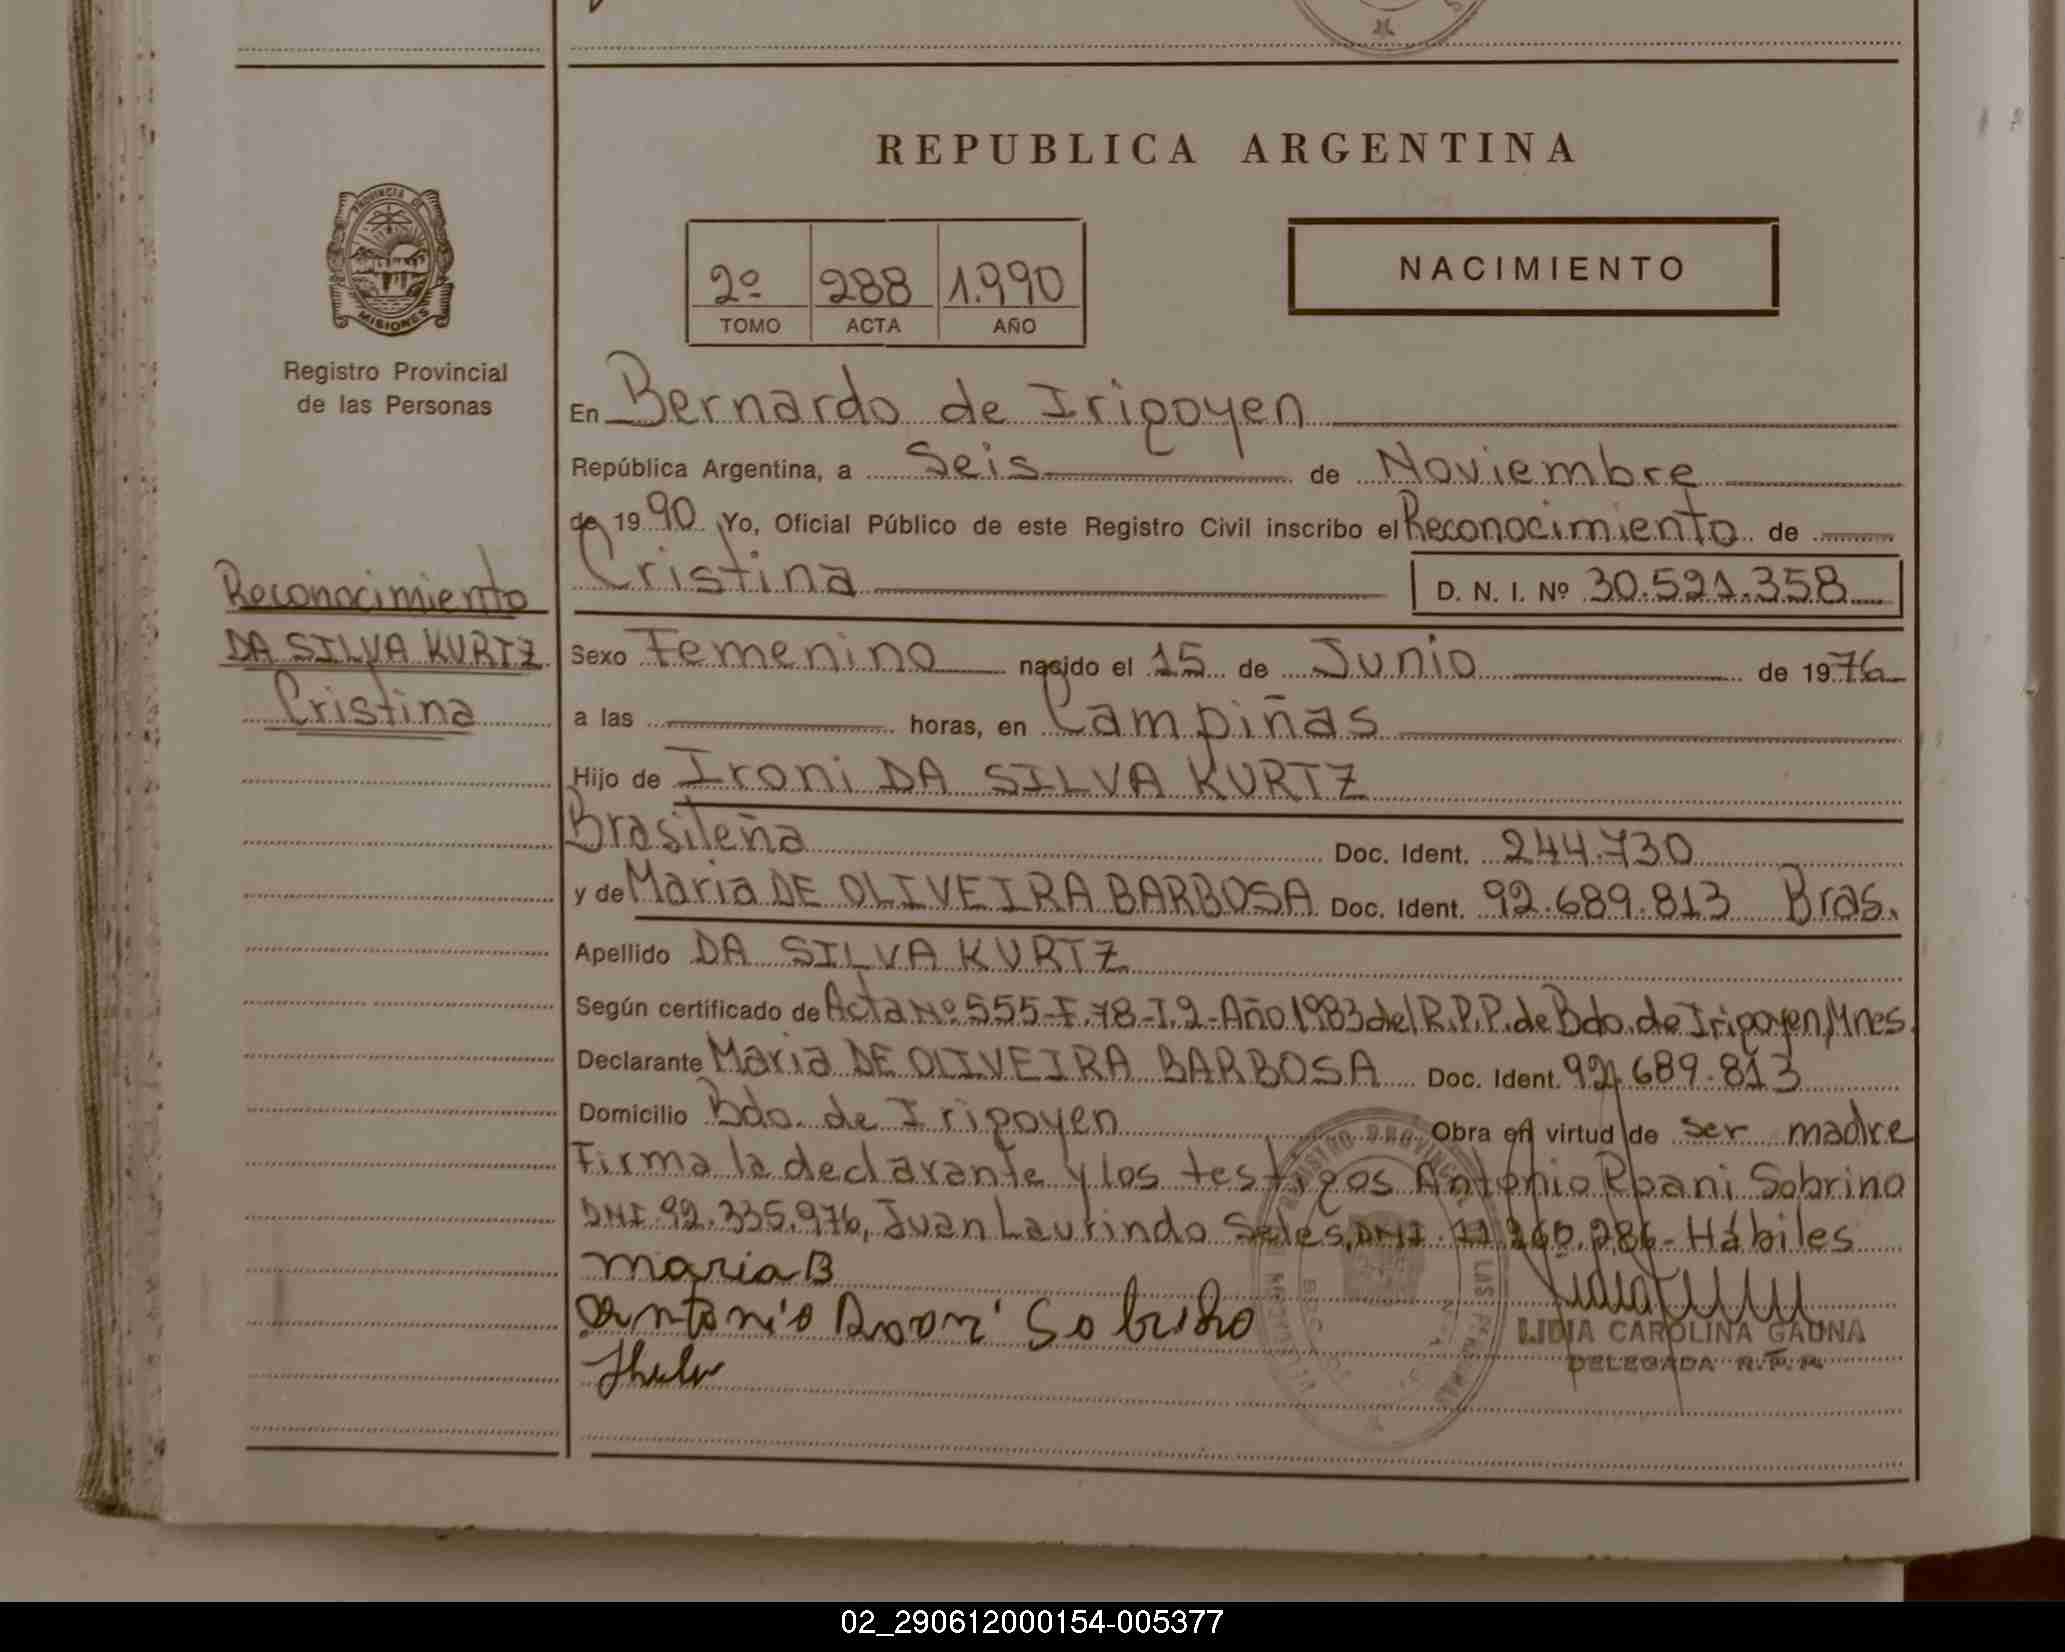 REPUBLICA ARGENTINA
PROVINCIA DE
MISIONES
Registro Provincial
de las Personas
2º 288 1.990
TOMO ACTA AÑO
NACIMIENTO
En Bernardo de Irigoyen
República Argentina, a Seis de Noviembre
de 1990 Yo, Oficial Público de este Registro Civil inscribo el Reconocimiento de
Cristina D. N. I. Nº 30.521.358
Reconocimiento
DA SILVA KURTZ
Cristina
Sexo Femenino nacido el 15 de Junio de 1976
a las horas, en Campiñas
Hijo de Ironi DA SILVA KURTZ
Brasileña Doc. Ident. 244.730
y de Maria DE OLIVEIRA BARBOSA Doc. Ident. 92.689.813 Bras.
Apellido DA SILVA KURTZ
Según certificado de Acta Nº 555-F.78-T.2-Año 1983 del R.P.P. de Bdo. de Irigoyen, Mnes.
Declarante Maria DE OLIVEIRA BARBOSA Doc. Ident. 92.689.813
Domicilio Bdo. de Irigoyen Obra en virtud de ser madre
Firma la declarante y los testigos Antonio Roani Sobrino
DNI 92.335.976, Juan Laurindo Seles, DNI. 11.260.286- Hábiles
maria B
Antonio Sobriho
LIDIA CAROLINA GAUNA
DELEGADA R.P.P.
02_290612000154-005377